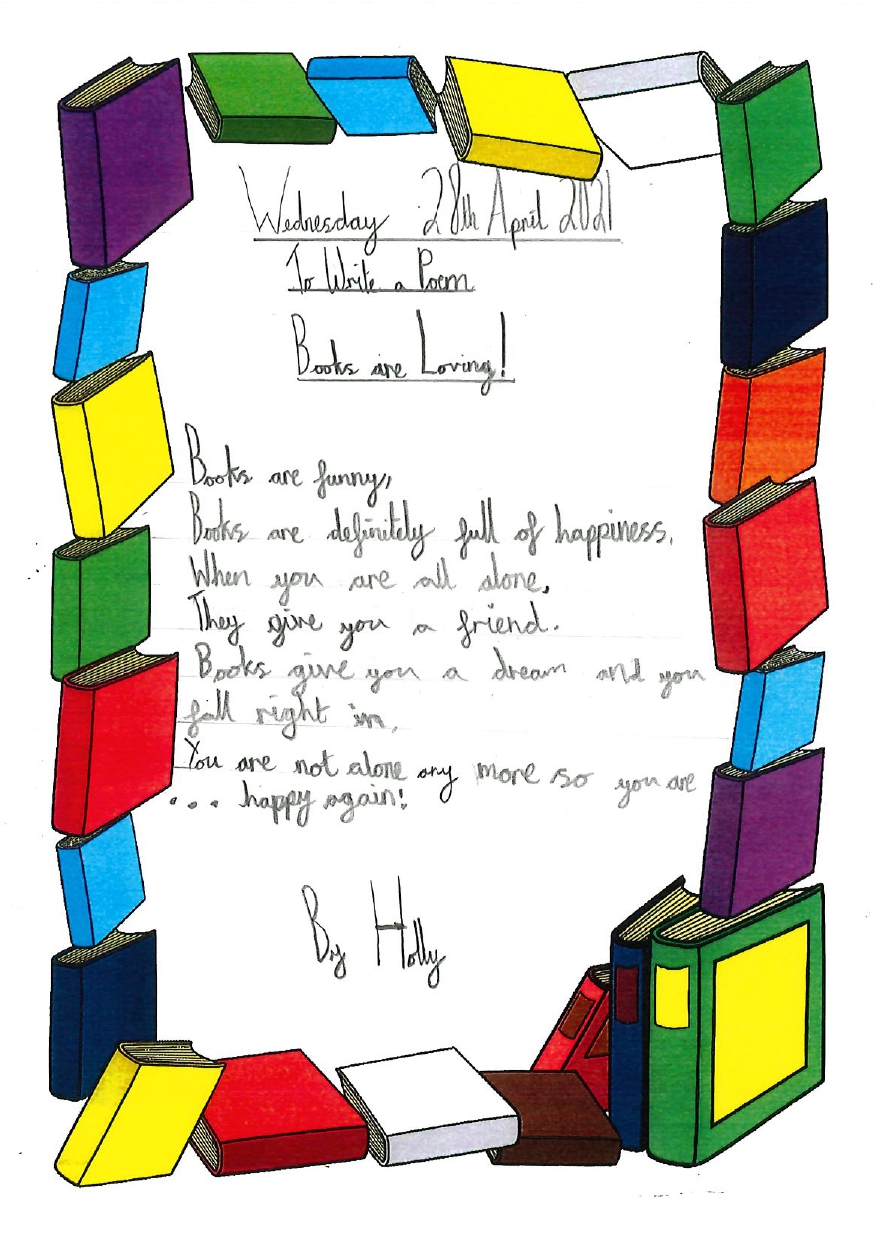 Wednesday 28th April 2021
To Write a Poem
Books are Loving!
Books are funny,
Books are definitely full of happiness.
When you are all alone,
They give you a friend.
Books give you a dream and you
fall right in,
You are not alone any more so you are
... happy again!
By Holly